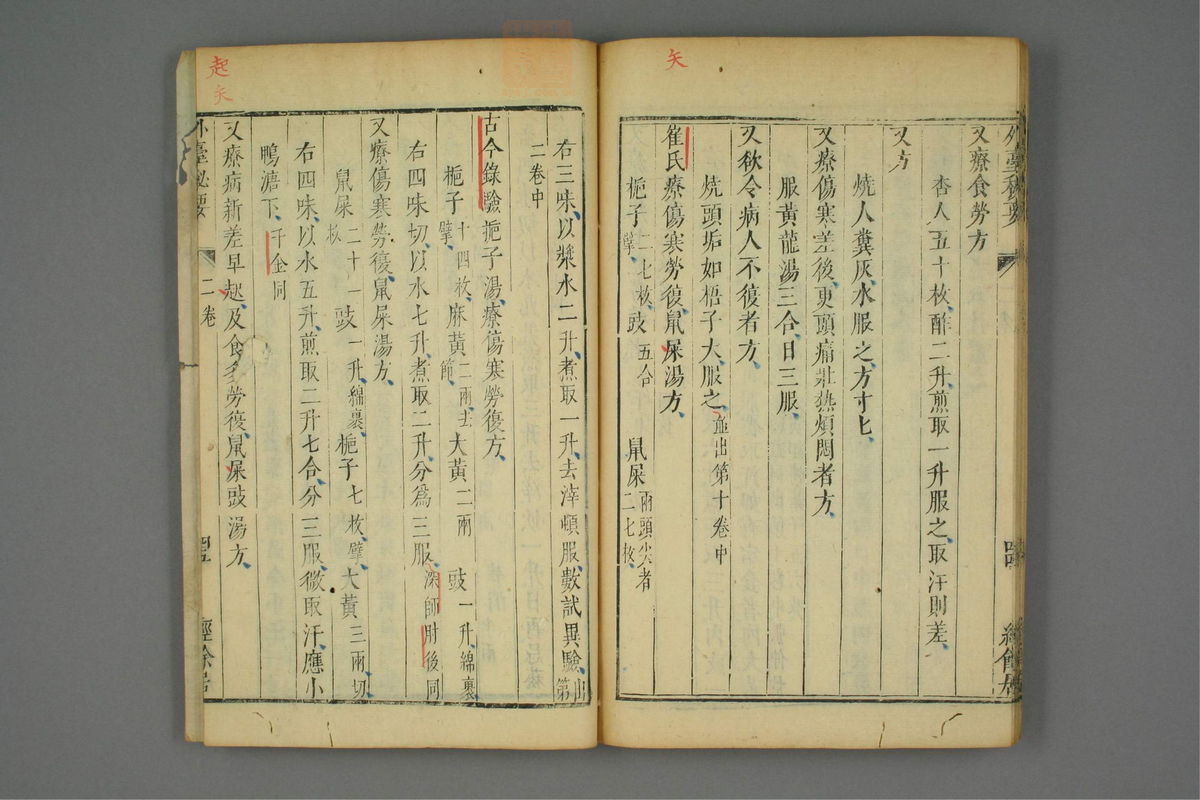 矢
外臺秘要
又療食勞方
杏人五十枚酢二升煎取一升服之取汗則差
又方
燒人糞灰水服之方寸匕
又療傷寒差後更頭痛壯熱煩悶者方
服黃龍湯三合日三服
又欲令病人不復者方
燒頭垢如梧子大服之並出第十卷中
崔氏療傷寒勞復鼠屎湯方
梔子二七枚擘豉五合鼠屎兩頭尖者二七枚
右三味以漿水二升煮取一升去滓頓服數試異驗出第
二卷中
古今錄驗梔子湯療傷寒勞復方
梔子十四枚擘麻黃二兩去節大黃二兩豉一升綿裹
右四味切以水七升煮取二升分爲三服深師肘後同
又療傷寒勞復鼠屎湯方
鼠屎二十一枚豉一升綿裹梔子七枚擘大黃三兩切
右四味以水五升煎取二升七合分三服微取汗應小
鴨溏下千金同
又療病新差早起及食多勞復鼠屎豉湯方
外臺秘要
二卷
經餘居
起
矢